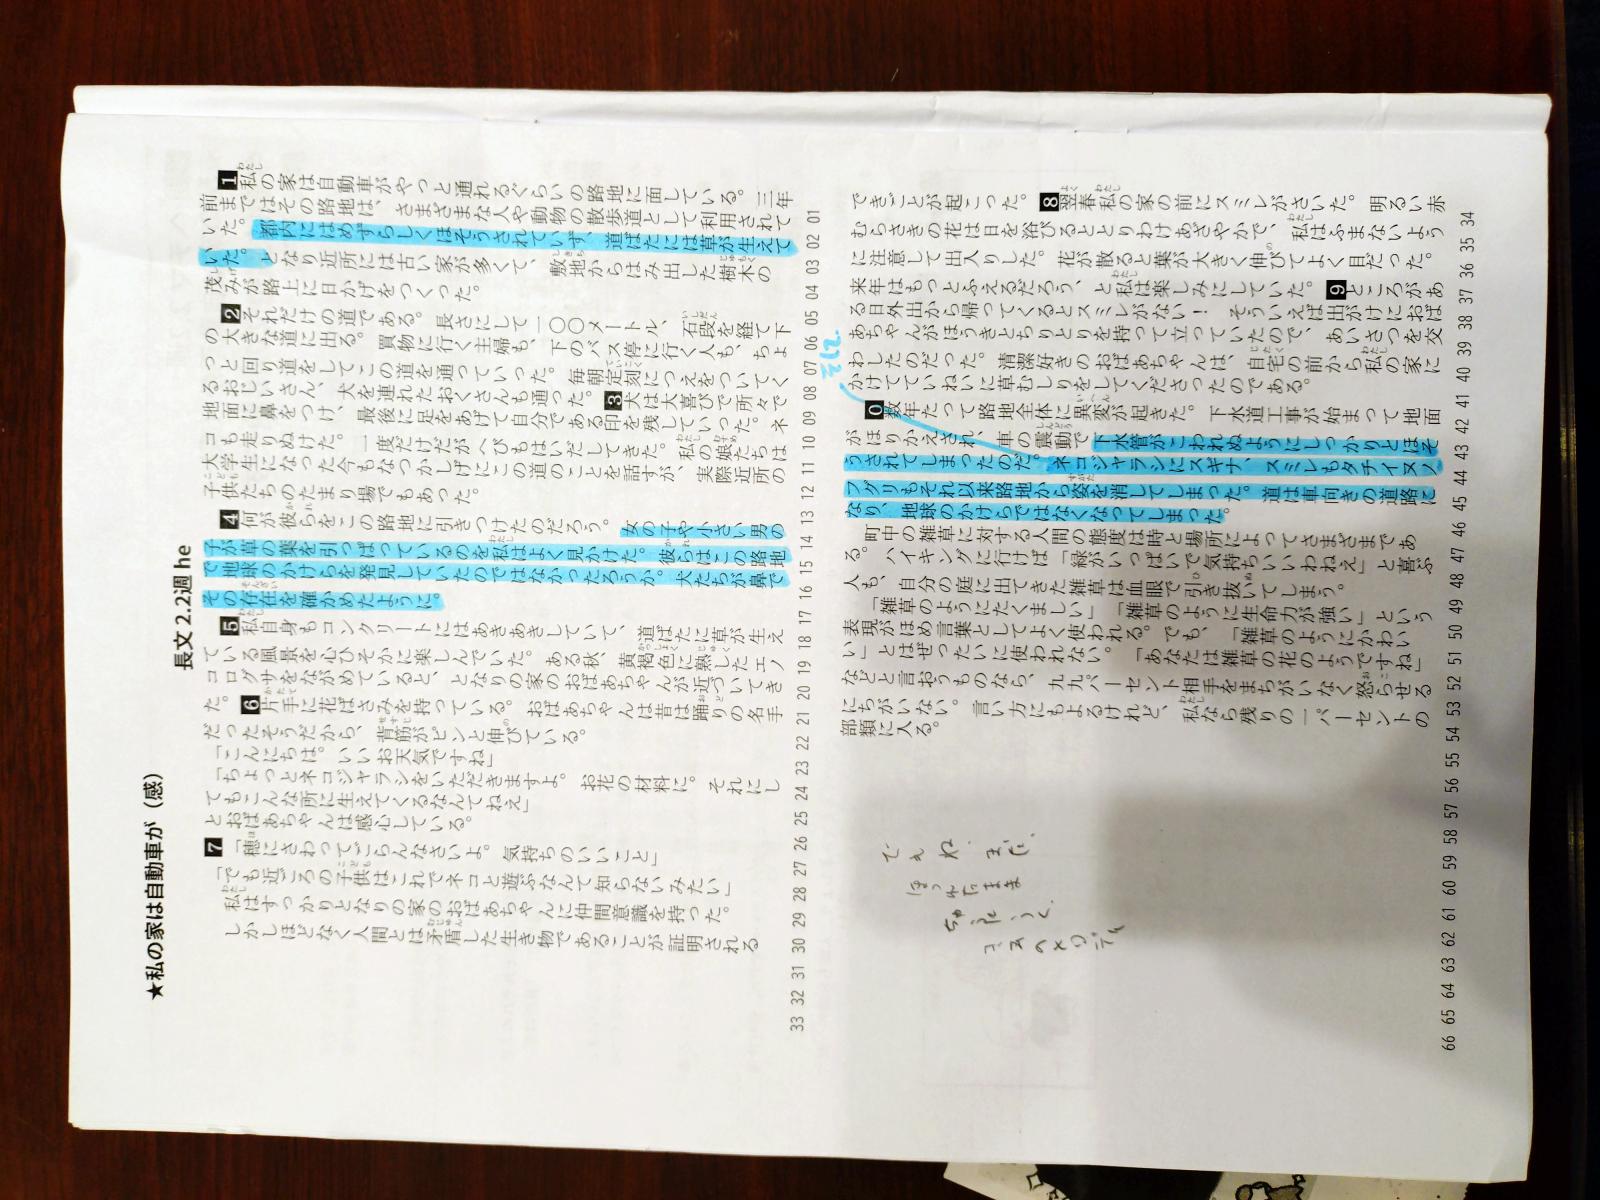 長文 2.2週 he
★私の家は自動車が (感)
1私の家は自動車がやっと通れるぐらいの路地に面している。三年
前まではその路地は、さまざまな人や動物の散歩道として利用されて
いた。都内にはめずらしくほそうされていず、道ばたには草が生えて
いた。となり近所には古い家が多くて、敷地からはみ出した樹木の
茂みが路上に日かげをつくった。
2それだけの道である。長さにして一〇〇メートル、石段を経て下
の大きな道に出る。買物に行く主婦も、下のバス停に行く人も、ちょ
っと回り道をしてこの道を通っていった。毎朝定刻につえをついてく
るおじいさん、犬を連れたおくさんも通った。3犬は大喜びで所々で
地面に鼻をつけ、最後に足をあげて自分である印を残していった。ネ
コも走りぬけた。一度だけだがへびもはいだしてきた。私の娘たちは
大学生になった今もなつかしげにこの道のことを話すが、実際近所の
子供たちのたまり場でもあった。
4何が彼らをこの路地に引きつけたのだろう。女の子や小さい男の
子が草の葉を引っぱっているのを私はよく見かけた。彼らはこの路地
で地球のかけらを発見していたのではなかったろうか。犬たちが鼻で
その存在を確かめたように。
5私自身もコンクリートにはあきあきしていて、道ばたに草が生え
ている風景を心ひそかに楽しんでいた。ある秋、黄褐色に熟したエノ
コログサをながめていると、となりの家のおばあちゃんが近づいてき
た。6片手に花ばさみを持っている。おばあちゃんは昔は踊りの名手
だったそうだから、背筋がピンと伸びている。
「こんにちは。いいお天気ですね」
「ちょっとネコジャラシをいただきますよ。お花の材料に。それにし
てもこんな所に生えてくるなんてねえ」
とおばあちゃんは感心している。
7「穂にさわってごらんなさいよ。気持ちのいいこと」
「でも近ごろの子供はこれでネコと遊ぶなんて知らないみたい」
私はすっかりとなりの家のおばあちゃんに仲間意識を持った。
しかしほどなく人間とは矛盾した生き物であることが証明される
01 02 03 04 05 06 07 08 09 10 11 12 13 14 15 16 17 18 19 20 21 22 23 24 25 26 27 28 29 30 31 32 33
できごとが起こった。8翌春私の家の前にスミレがさいた。明るい赤
むらさきの花は日を浴びるととりわけあざやかで、私はふまないよう
に注意して出入りした。花が散ると葉が大きく伸びてよく目だった。
来年はもっとふえるだろう、と私は楽しみにしていた。9ところがあ
る日外出から帰ってくるとスミレがない！ そういえば出がけにおば
あちゃんがほうきとちりとりを持って立っていたので、あいさつを交
わしたのだった。清潔好きのおばあちゃんは、自宅の前から私の家に
かけてていねいに草むしりをしてくださったのである。
0数年たって路地全体に異変が起きた。下水道工事が始まって地面
がほりかえされ、車の震動で下水管がこわれぬようにしっかりとほそ
うされてしまったのだ。ネコジャラシにスギナ、スミレもタチイヌノ
フグリもそれ以来路地から姿を消してしまった。道は車向きの道路に
なり、地球のかけらではなくなってしまった。
町中の雑草に対する人間の態度は時と場所によってさまざまであ
る。ハイキングに行けば「緑がいっぱいで気持ちいいわねえ」と喜ぶ
人も、自分の庭に出てきた雑草は血眼で引き抜いてしまう。
「雑草のようにたくましい」「雑草のように生命力が強い」という
表現がほめ言葉としてよく使われる。でも、「雑草のようにかわい
い」とはぜったいに使われない。「あなたは雑草の花のようですね」
などと言おうものなら、九九パーセント相手をまちがいなく怒らせる
にちがいない。言い方にもよるけれど、私なら残りの一パーセントの
部類に入る。
34 35 36 37 38 39 40 41 42 43 44 45 46 47 48 49 50 51 52 53 54 55 56 57 58 59 60 61 62 63 64 65 66
そして
でもね、まだ